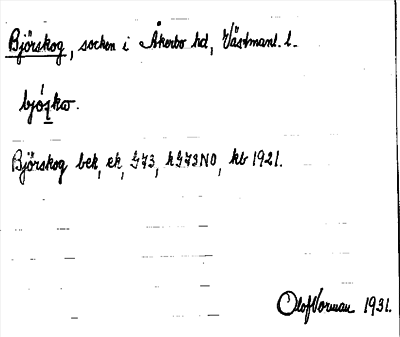 Björskog, socken i Åkerbo hd, Västmanl. l.
Björskog bek, ek, G73, hG73NO, kb 1921.
Olof Vorman 1931.